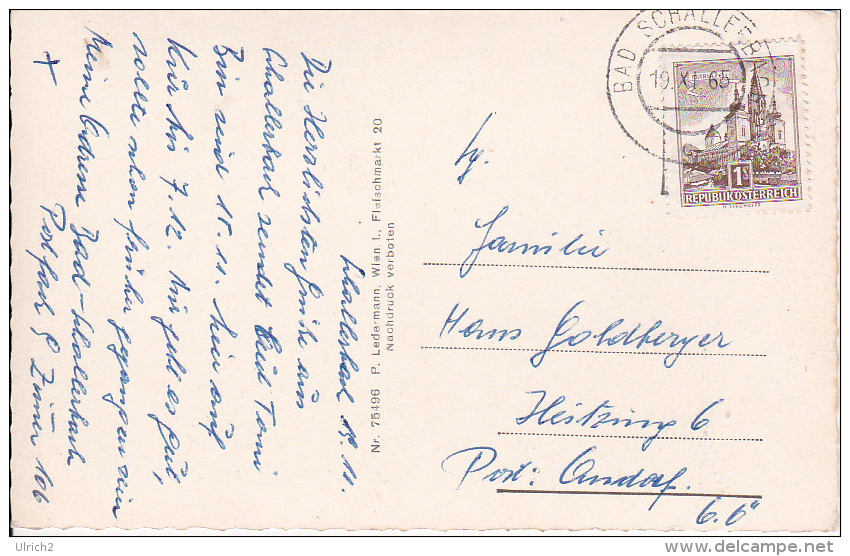 Schallerbad 18.11.
Die Herzlichsten Grüße aus
Schallerbad sendet Euch Toni
Bin seid 15.11. hier auf
Kur bis 7.12. Mir geht es gut,
sollte schon früher gegangen sein
Meine Adresse Bad-Schallerbach
Postfach 8 Zimmer 106
+
Nr. 75496 P. Ledermann, Wien I., Fleischmarkt 20
Nachdruck verboten
BAD SCHALLERBACH
19. XI. 65
MARIAZELL
1 S
REPUBLIK ÖSTERREICH
Familie
Hans Goldberger
Heitzing 6
Post: Andorf.
Ulrich2
http://www.delcampe.net